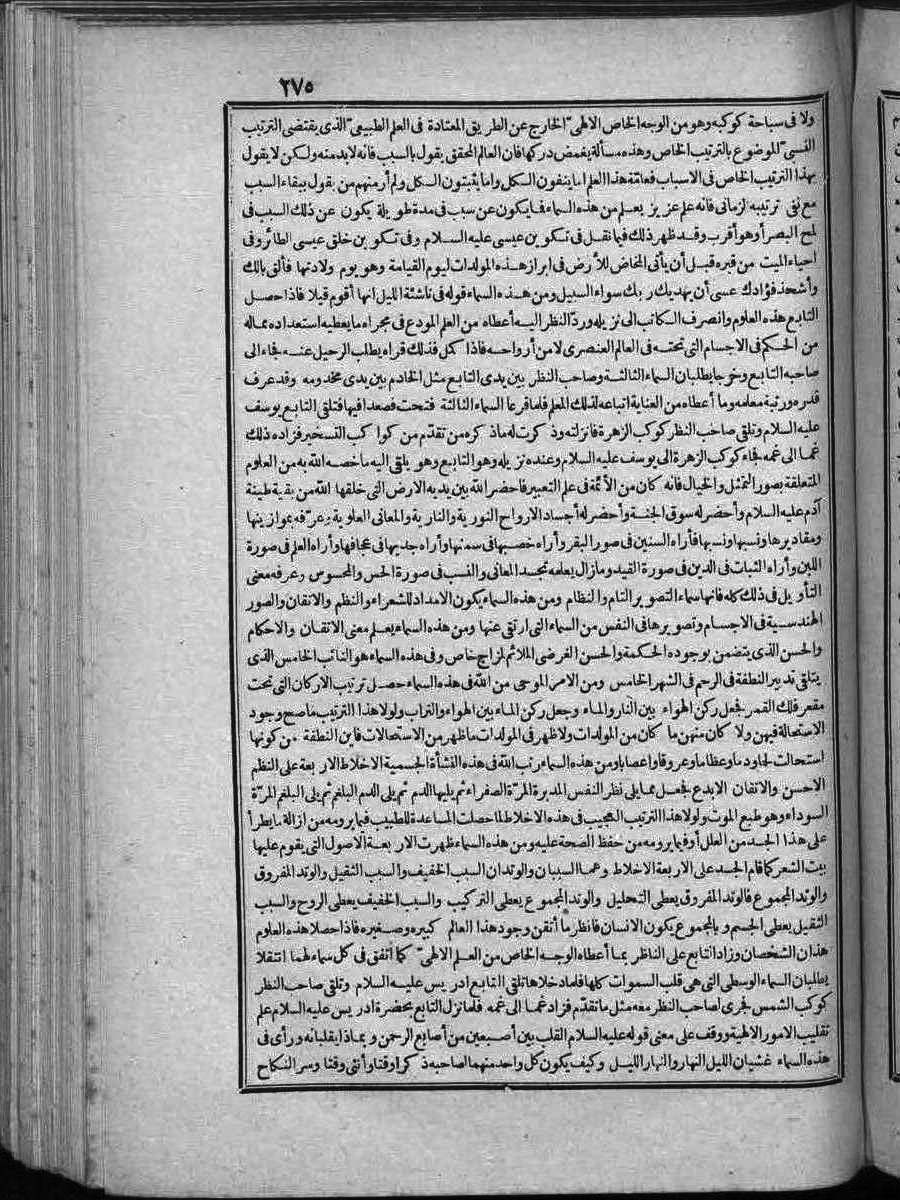 ٢٧٥
ولا فى سباحة كوكبه وهو من الوجه الخاص الالهىّ الخارج عن الطريق المعتادة فى العلم الطبيعىّ الذى يقتضى الترتيب
النسبىّ الموضوع بالترتيب الخاص وهذه مسألة يغمض دركها فان العالم المحقق يقول بالسبب فانه لابد منه ولكن لا يقول
بهذا الترتيب الخاص فى الاسباب فعامّة هذا العلم اما ينفون الكل واما يثبتون الكل ولم أر منهم من يقول ببقاء السبب
مع نفى ترتيبه الزمانى فانه علم عزيز يعلم من هذه السماء فما يكون عن سبب فى مدة طويلة يكون عن ذلك السبب فى
لمح البصر أو هو أقرب وقد ظهر ذلك فيما نقل فى تكوين عيسى عليه السلام وفى تكوين خلق عيسى الطائر وفى
احياء الميت من قبره قبل أن يأتى المخاض للأرض فى ابراز هذه المولدات ليوم القيامة وهو يوم ولادتها فألق بالك
وأشحذ فؤادك عسى أن يهديك ربك سواء السبيل ومن هذه السماء قوله فى ناشئة الليل انها أقوم قيلا فاذا حصل
التابع هذه العلوم وانصرف الكاتب الى نزيله وردّ النظر اليه أعطاه من العلم المودع فى مجراه ما يعطيه استعداده مماله
من الحكم فى الاجسام التى تحته فى العالم العنصرى لا من أرواحه فاذا كمل فذلك قراه يطلب الرحيل عنه فجاء الى
صاحبه التابع وخرجا يطلبان السماء الثالثة وصاحب النظر بين يدى التابع مثل الخادم بين يدى مخدومه وقد عرف
قدره ورتبة معلمه وما أعطاه من العناية اتباعه لذلك المعلم فلما قرعا السماء الثالثة فتحت فصعدا فيها فتلقى التابع يوسف
عليه السلام وتلقى صاحب النظر كوكب الزهرة فانزلته وذكرت له ماذكره من تقدّم من كواكب التسخير فزاده ذلك
غما الى غمه فجاء كوكب الزهرة الى يوسف عليه السلام وعنده نزيله وهو التابع وهو يلقى اليه ماخصه الله به من العلوم
المتعلقة بصور التمثل والخيال فانه كان من الأئمة فى علم التعبير فاحضر الله بين يديه الارض التى خلقها الله من بقية طينة
آدم عليه السلام وأحضر له سوق الجنة وأحضر له أجساد الارواح النورية والنارية والمعانى العلوية وعرّفه بموازينها
ومقاديرها ونسبها ونسبها فأراه السنين فى صور البقر وأراه خصبها فى سمنها وأراه جدبها فى عجافها وأراه العلم فى صورة
اللبن وأراه الثبات فى الدين فى صورة القيد ومازال يعلمه تجسد المعانى والنسب فى صورة الحس والمحسوس وعرفه معنى
التأويل فى ذلك كله فانها سماء التصوير التام والنظام ومن هذه السماء يكون الامداد للشعراء والنظم والاتقان والصور
الهندسية فى الاجسام وتصويرها فى النفس من السماء التى ارتقى عنها ومن هذه السماء يعلم معنى الاتقان والاحكام
والحسن الذى يتضمن بوجوده الحكمة والحسن الغرضى الملائم لمزاج خاص وفى هذه السماء هو النائب الخامس الذى
يتلقى تدبير النطفة فى الرحم فى الشهر الخامس ومن الامر الموحى من الله فى هذه السماء حصل ترتيب الاركان التى تحت
مقعر فلك القمر فجعل ركن الهواء بين النار والماء وجعل ركن الماء بين الهواء والتراب ولولا هذا الترتيب ماصح وجود
الاستحالة فيهن ولا كان منهن ما كان من المولدات ولا ظهر فى المولدات ماظهر من الاستحالات فاين النطفة من كونها
استحالت لحما ودما وعظاما وعروقا واعصابا ومن هذه السماء رتب الله فى هذه النشأة الجسمية الاخلاط الاربعة على النظم
الاحسن والاتقان الابدع فجعل مما يلى نظر النفس المدبرة المرّة الصفراء ثم يليها الدم ثم يلى الدم البلغم ثم يلى البلغم المرّة
السوداء وهو طبع الموت ولولا هذا الترتيب العجيب فى هذه الاخلاط لما حصلت المساعدة للطبيب فيما يرومه من ازالة مايطرأ
على هذا الجسد من العلل أو فيما يرومه من حفظ الصحة عليه ومن هذه السماء ظهرت الاربعة الاصول التى يقوم عليها
بيت الشعر كما قام الجسد على الاربعة الاخلاط وهما السببان والوتدان السبب الخفيف والسبب الثقيل والوتد المفروق
والوتد المجموع فالوتد المفروق يعطى التحليل والوتد المجموع يعطى التركيب والسبب الخفيف يعطى الروح والسبب
الثقيل يعطى الجسم وبالمجموع يكون الانسان فانظر ما أتقن وجود هذا العالم كبيره وصغيره فاذا حصلا هذه العلوم
هذان الشخصان وزاد التابع على الناظر بما أعطاه الوجه الخاص من العلم الالهىّ كما اتفق فى كل سماء لهما انتقلا
يطلبان السماء الوسطى التى هى قلب السموات كلها فلما دخلاها تلقى التابع ادريس عليه السلام وتلقى صاحب النظر
كوكب الشمس فجرى لصاحب النظر معه مثل ما تقدّم فزاد غما الى غمه فلما نزل التابع بحضرة ادريس عليه السلام علم
تقليب الامور الالهية ووقف على معنى قوله عليه السلام القلب بين أصبعين من أصابع الرحمن وبماذا يقلبانه ورأى فى
هذه السماء غشيان الليل النهار والنهار الليل وكيف يكون كل واحد منهما لصاحبه ذكرا وقتا وأنثى وقتا وسر النكاح